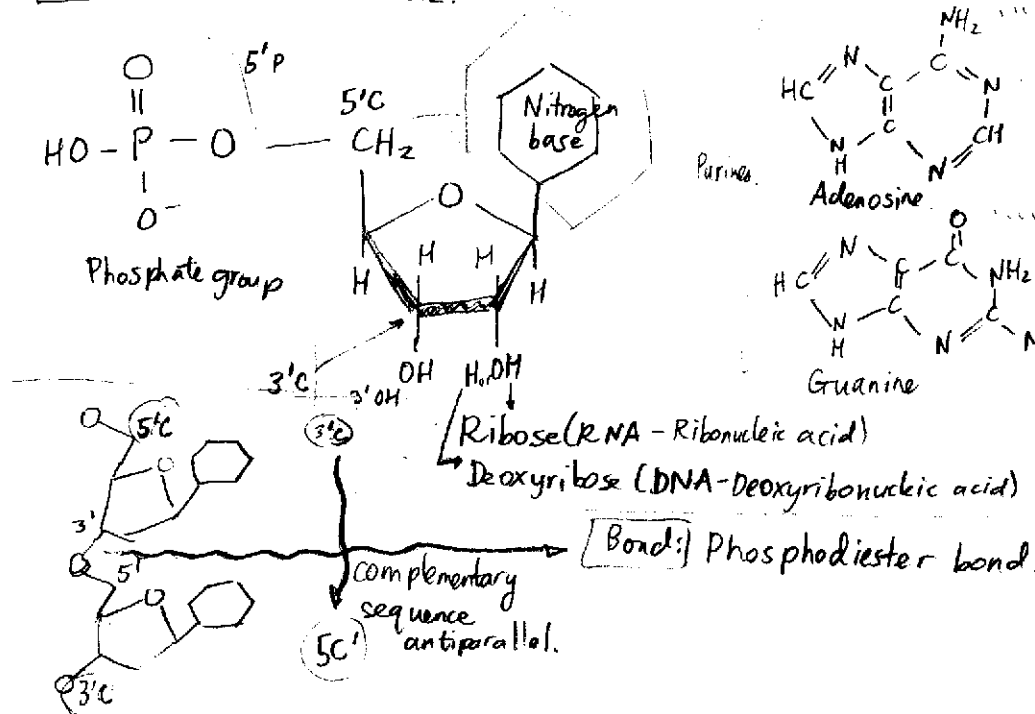 5'P
O
5'C
Nitrogen
base
HO - P - O - CH₂
O⁻
O
Phosphate group
H H H H
3'C
3'OH
OH
H or OH
Ribose (RNA - Ribonucleic acid)
Deoxyribose (DNA - Deoxyribonucleic acid)
Purines.
NH₂
N
C
HC
C
N
CH
N
H
N
Adenosine
O
N
C
C
NH₂
HC
C
C
N
H
N
N
Guanine
5'C
O
3'
5'
O
3'C
3'C
complementary
sequence
antiparallel.
5C'
Bond: Phosphodiester bond.